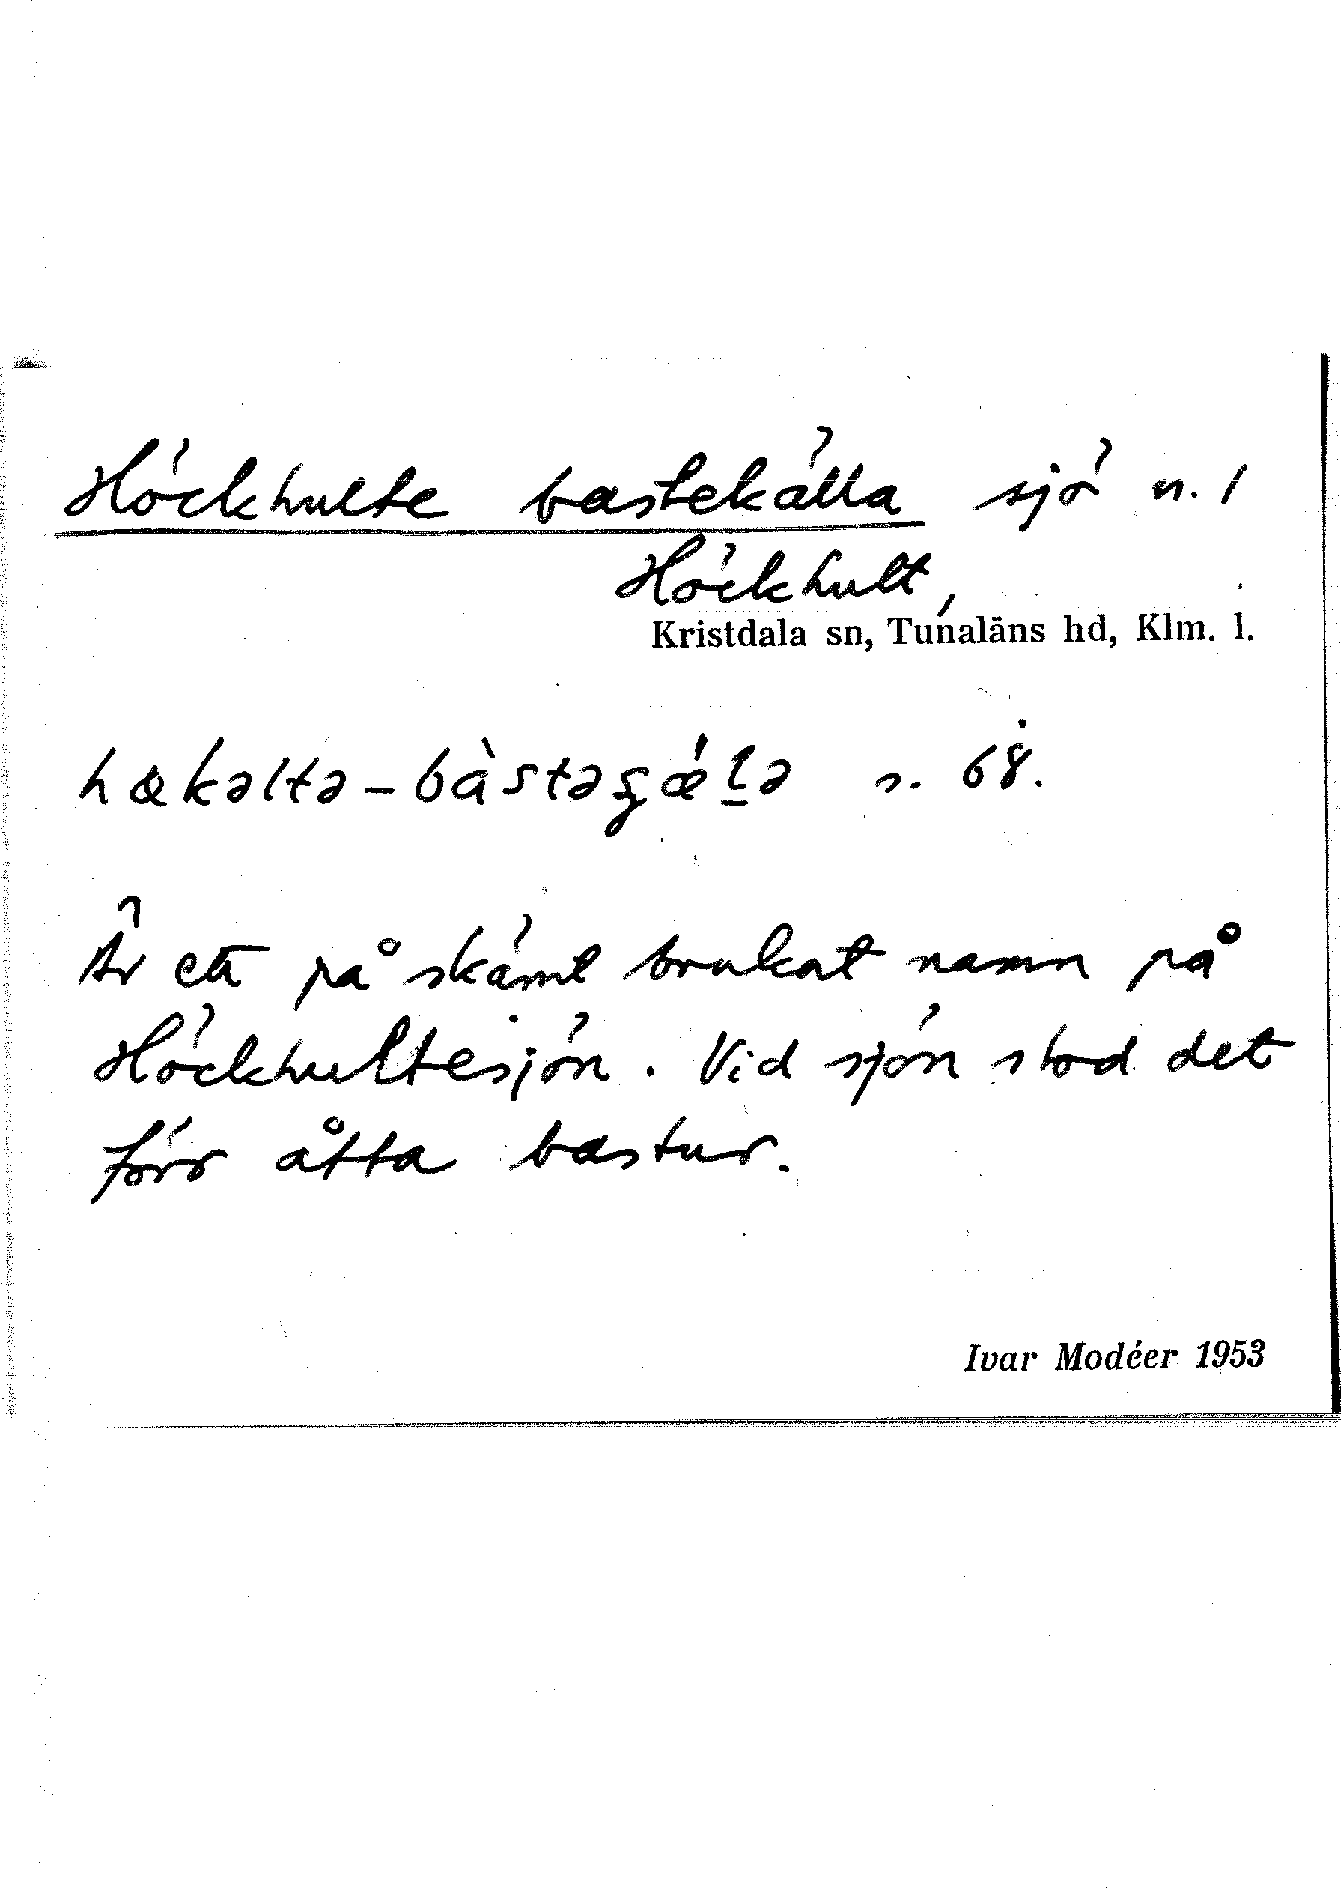 Höckhulte bastekälla sjö n. 1
Höckhult,
Kristdala sn, Tunaläns hd, Klm. l.
hækəltə-bàstəʂǽlə s. 68.
Är ett på skämt brukat namn på
Höckhultesjön. Vid sjön stod det
förr åtta bastur.
Ivar Modéer 1953